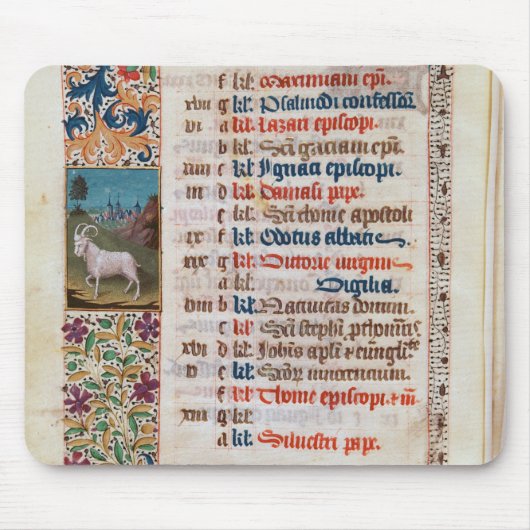 f kl. Maximiani epi.
xviii g kl. Psalmodi confessor
vi a kl. Lazari episcopi.
b kl. Sci graciani epi.
xiiii c kl. Ignaci episcopi.
iii d kl. Damasi pape.
e kl. Sci thome apostoli
xi f kl. abbatis
xix g kl. Victorie virginis
a kl. Vigilia.
viii b kl. Nativitas domini.
c kl. Sci stephani
xvi d kl. Johis apli & euvngliste
v e kl. Scor innocentum.
f kl. Thome episcopi. & m
xiii g kl.
a kl. Silvestri pape.